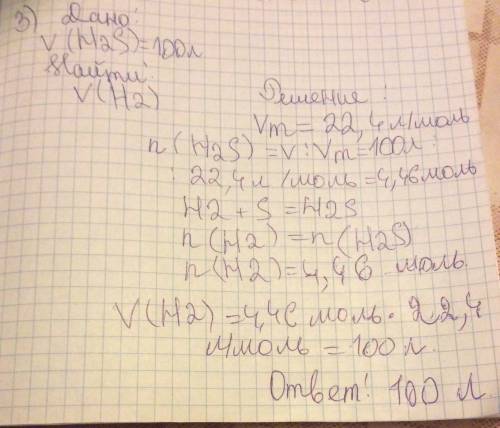 3) Дано:
V(H2S)=100л
Найти:
V(H2)
Решение:
Vm = 22,4 л/моль
n(H2S) = V : Vm = 100л :
: 22,4 л/моль = 4,46 моль
H2 + S = H2S
n(H2) = n(H2S)
n(H2) = 4,46 моль.
V(H2) = 4,46 моль · 22,4
л/моль = 100 л.
Ответ: 100 л.